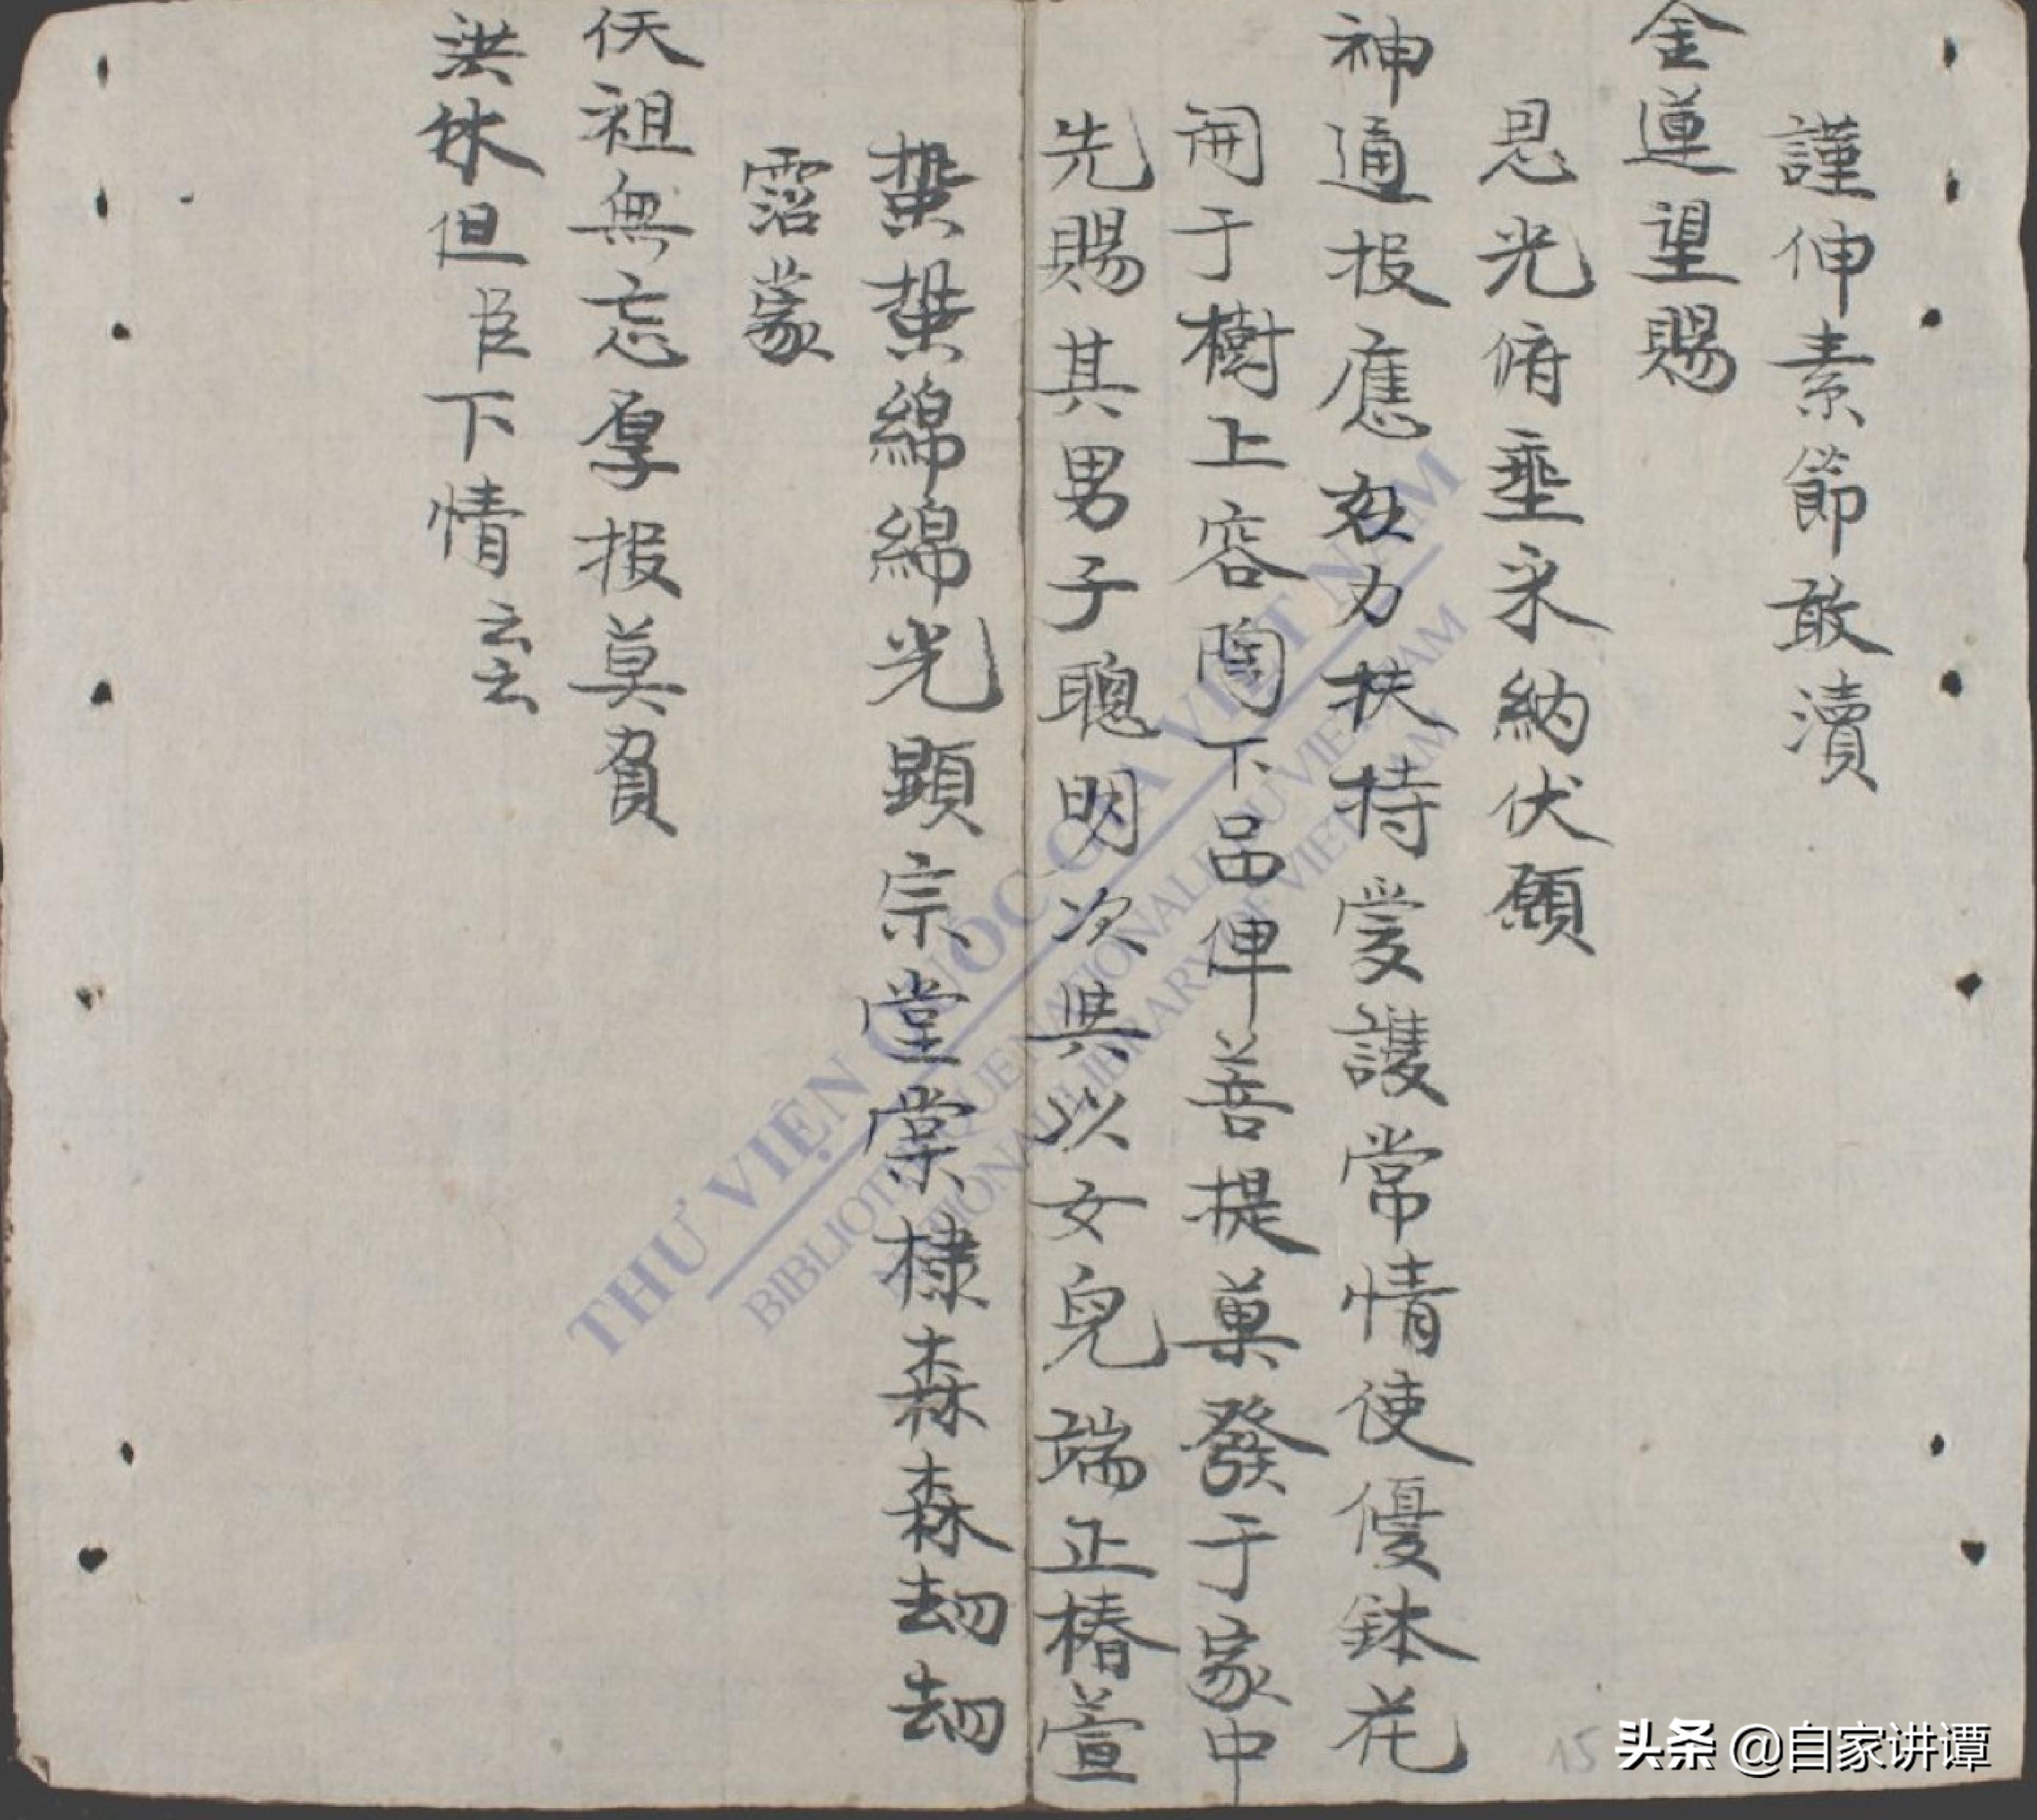 謹伸素節敢瀆
金蓮望賜
恩光俯垂采納伏願
神通报應效力扶持愛護常情使優鉢花
開于樹上容陶下品俾菩提菓發于家中
先賜其男子聰明次與以女兒端正椿萱
蛬蛬綿綿光顯宗堂棠棣森森劫劫
霑蒙
仸祖無忘厚报莫負
洪休但臣下情云云
THƯ VIỆN QUỐC GIA VIỆT NAM
NATIONAL LIBRARY OF VIETNAM
15
头条 @自家讲谭